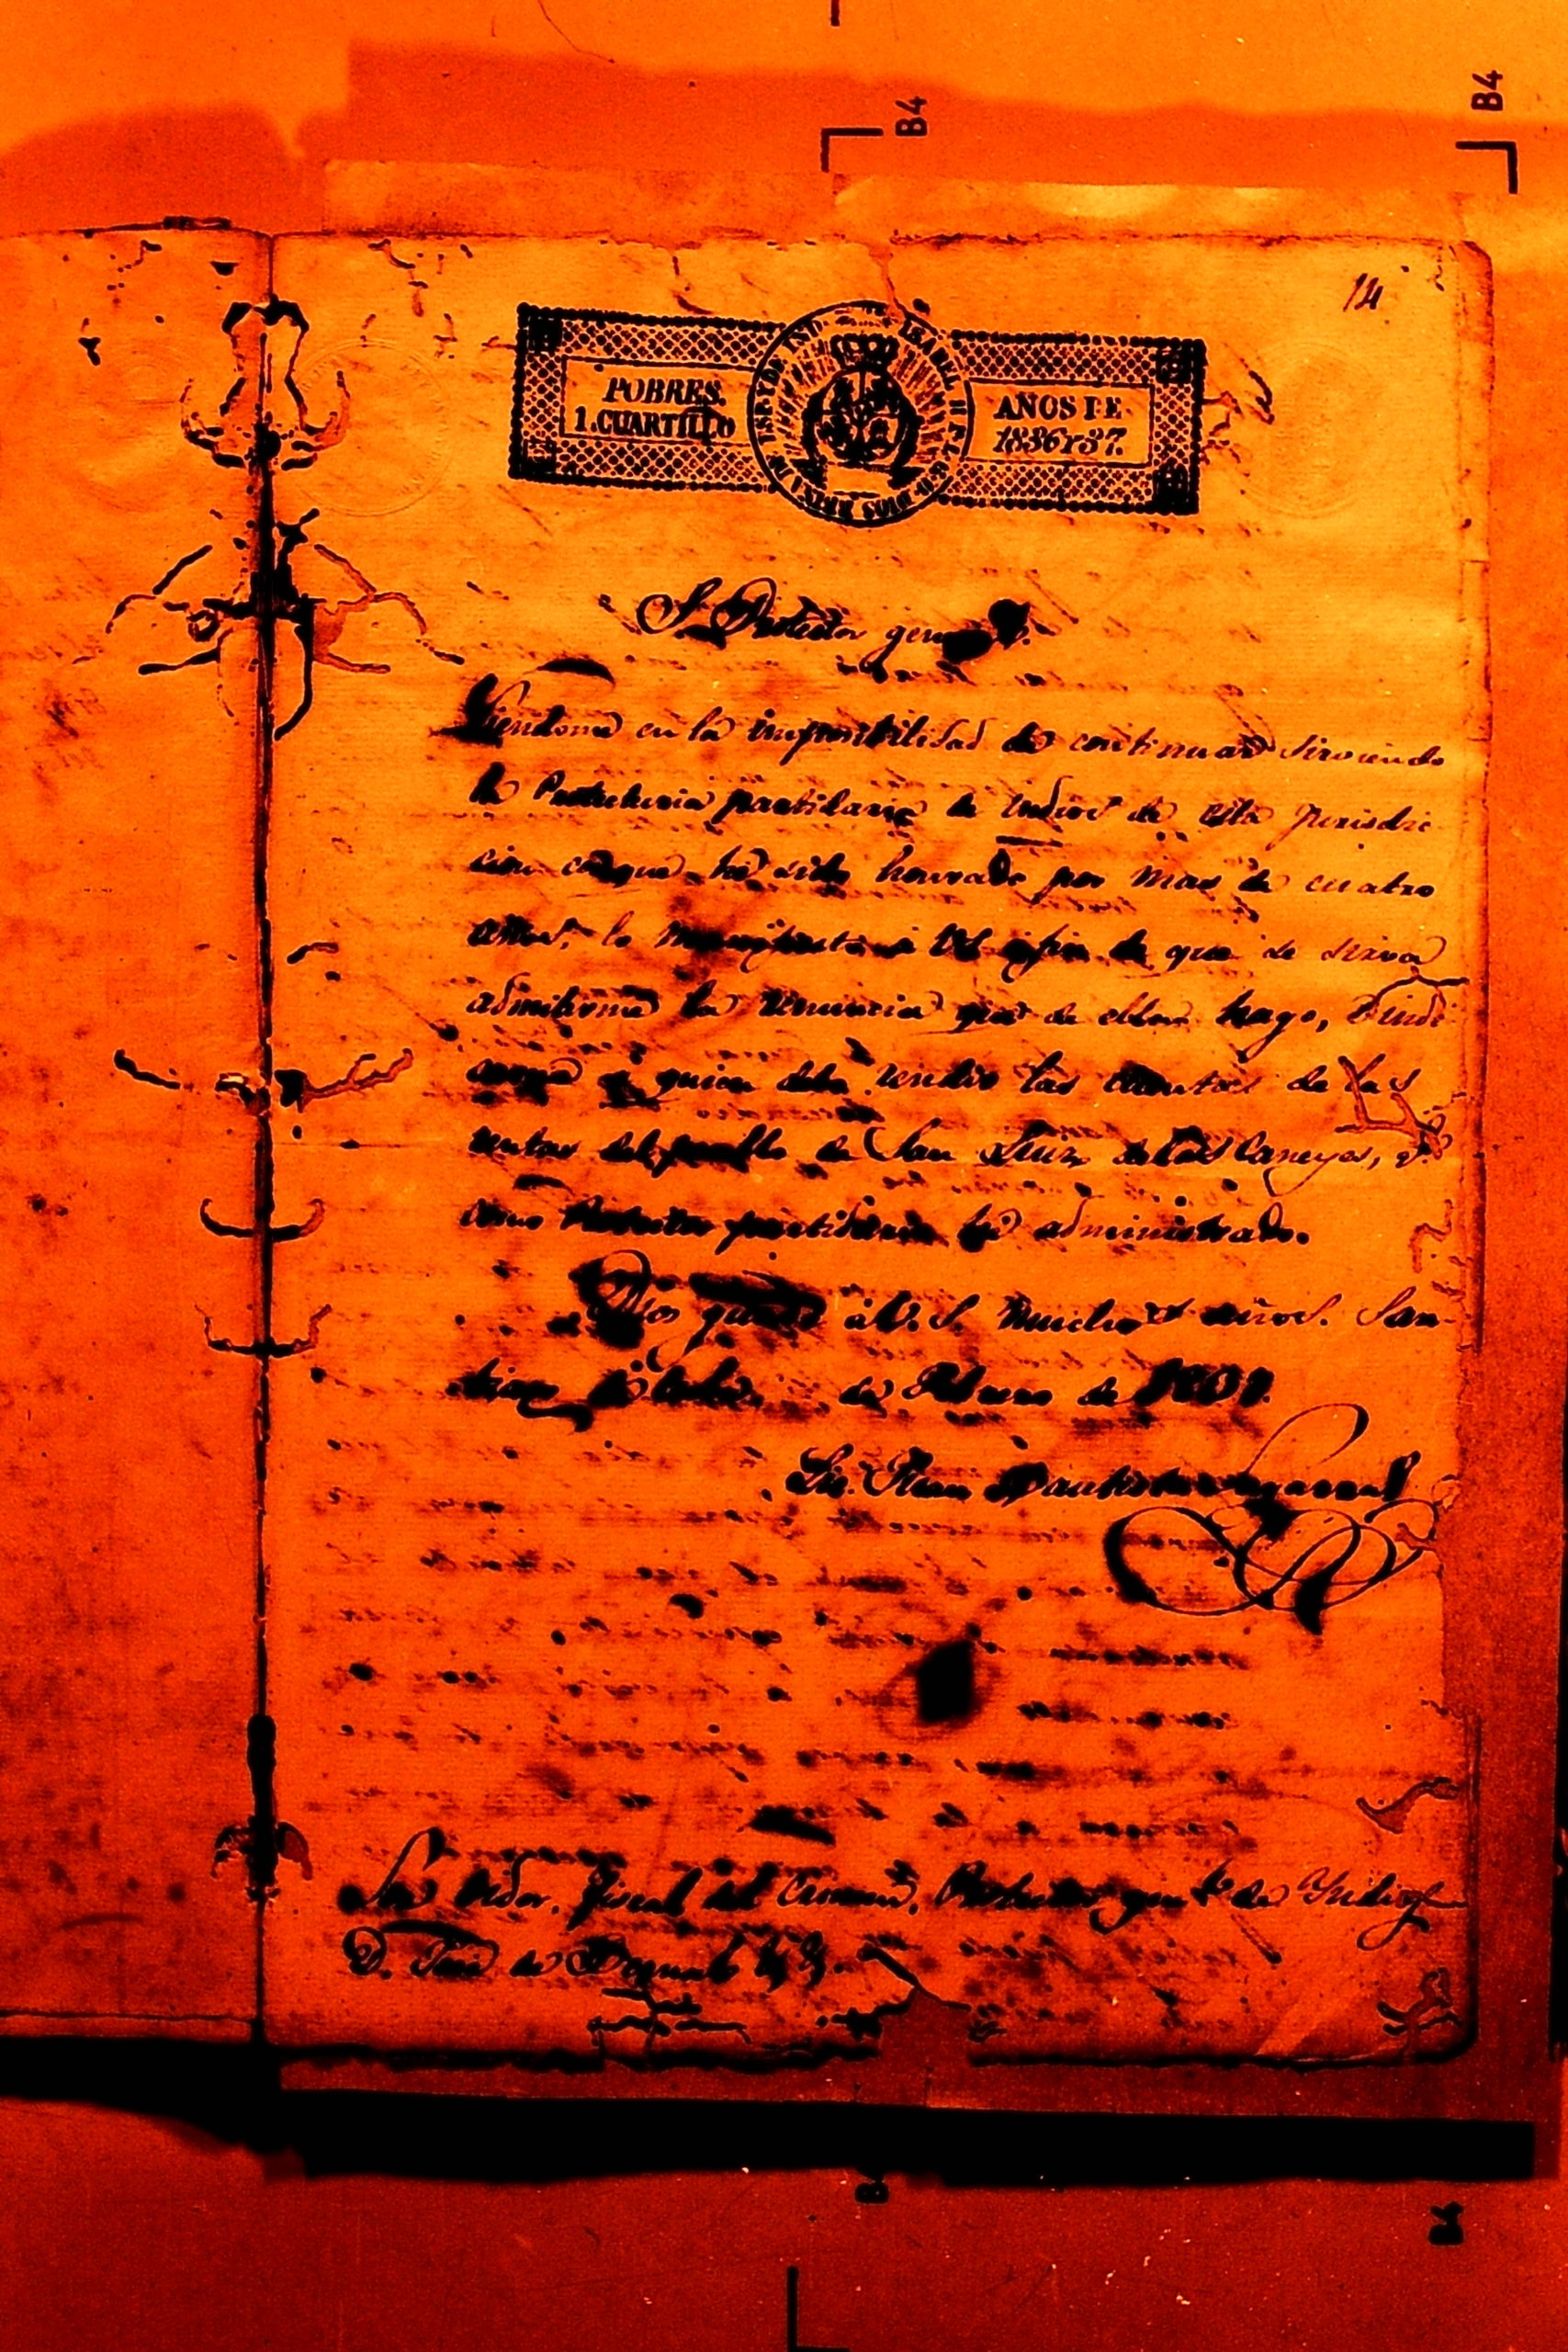 B4
B4
14
POBRES.
1. CUARTILLO
AÑOS DE
1836 Y 37.
S. Protector general.
Viendome en la imposibilidad de continuar sirviendo
la Protecturia partidaria de indios de esta jurisdic-
cion con que he sido honrado por mas de cuatro
años, lo manifiesto á VS. afin de que se sirva
admitirme la renuncia que de ella hago,
á quien debo rendir las cuentas de las
rentas del pueblo de San Luis de los Caneyes, q.e
como Protector partidario he administrado.
Dios guarde á V. S. muchos años. San-
tiago de Cuba de Febrero de 1837.
Lic. Juan Bautista
Sor. Oidor, fiscal del Crimen, Protector gen.l de Indios
D. José de